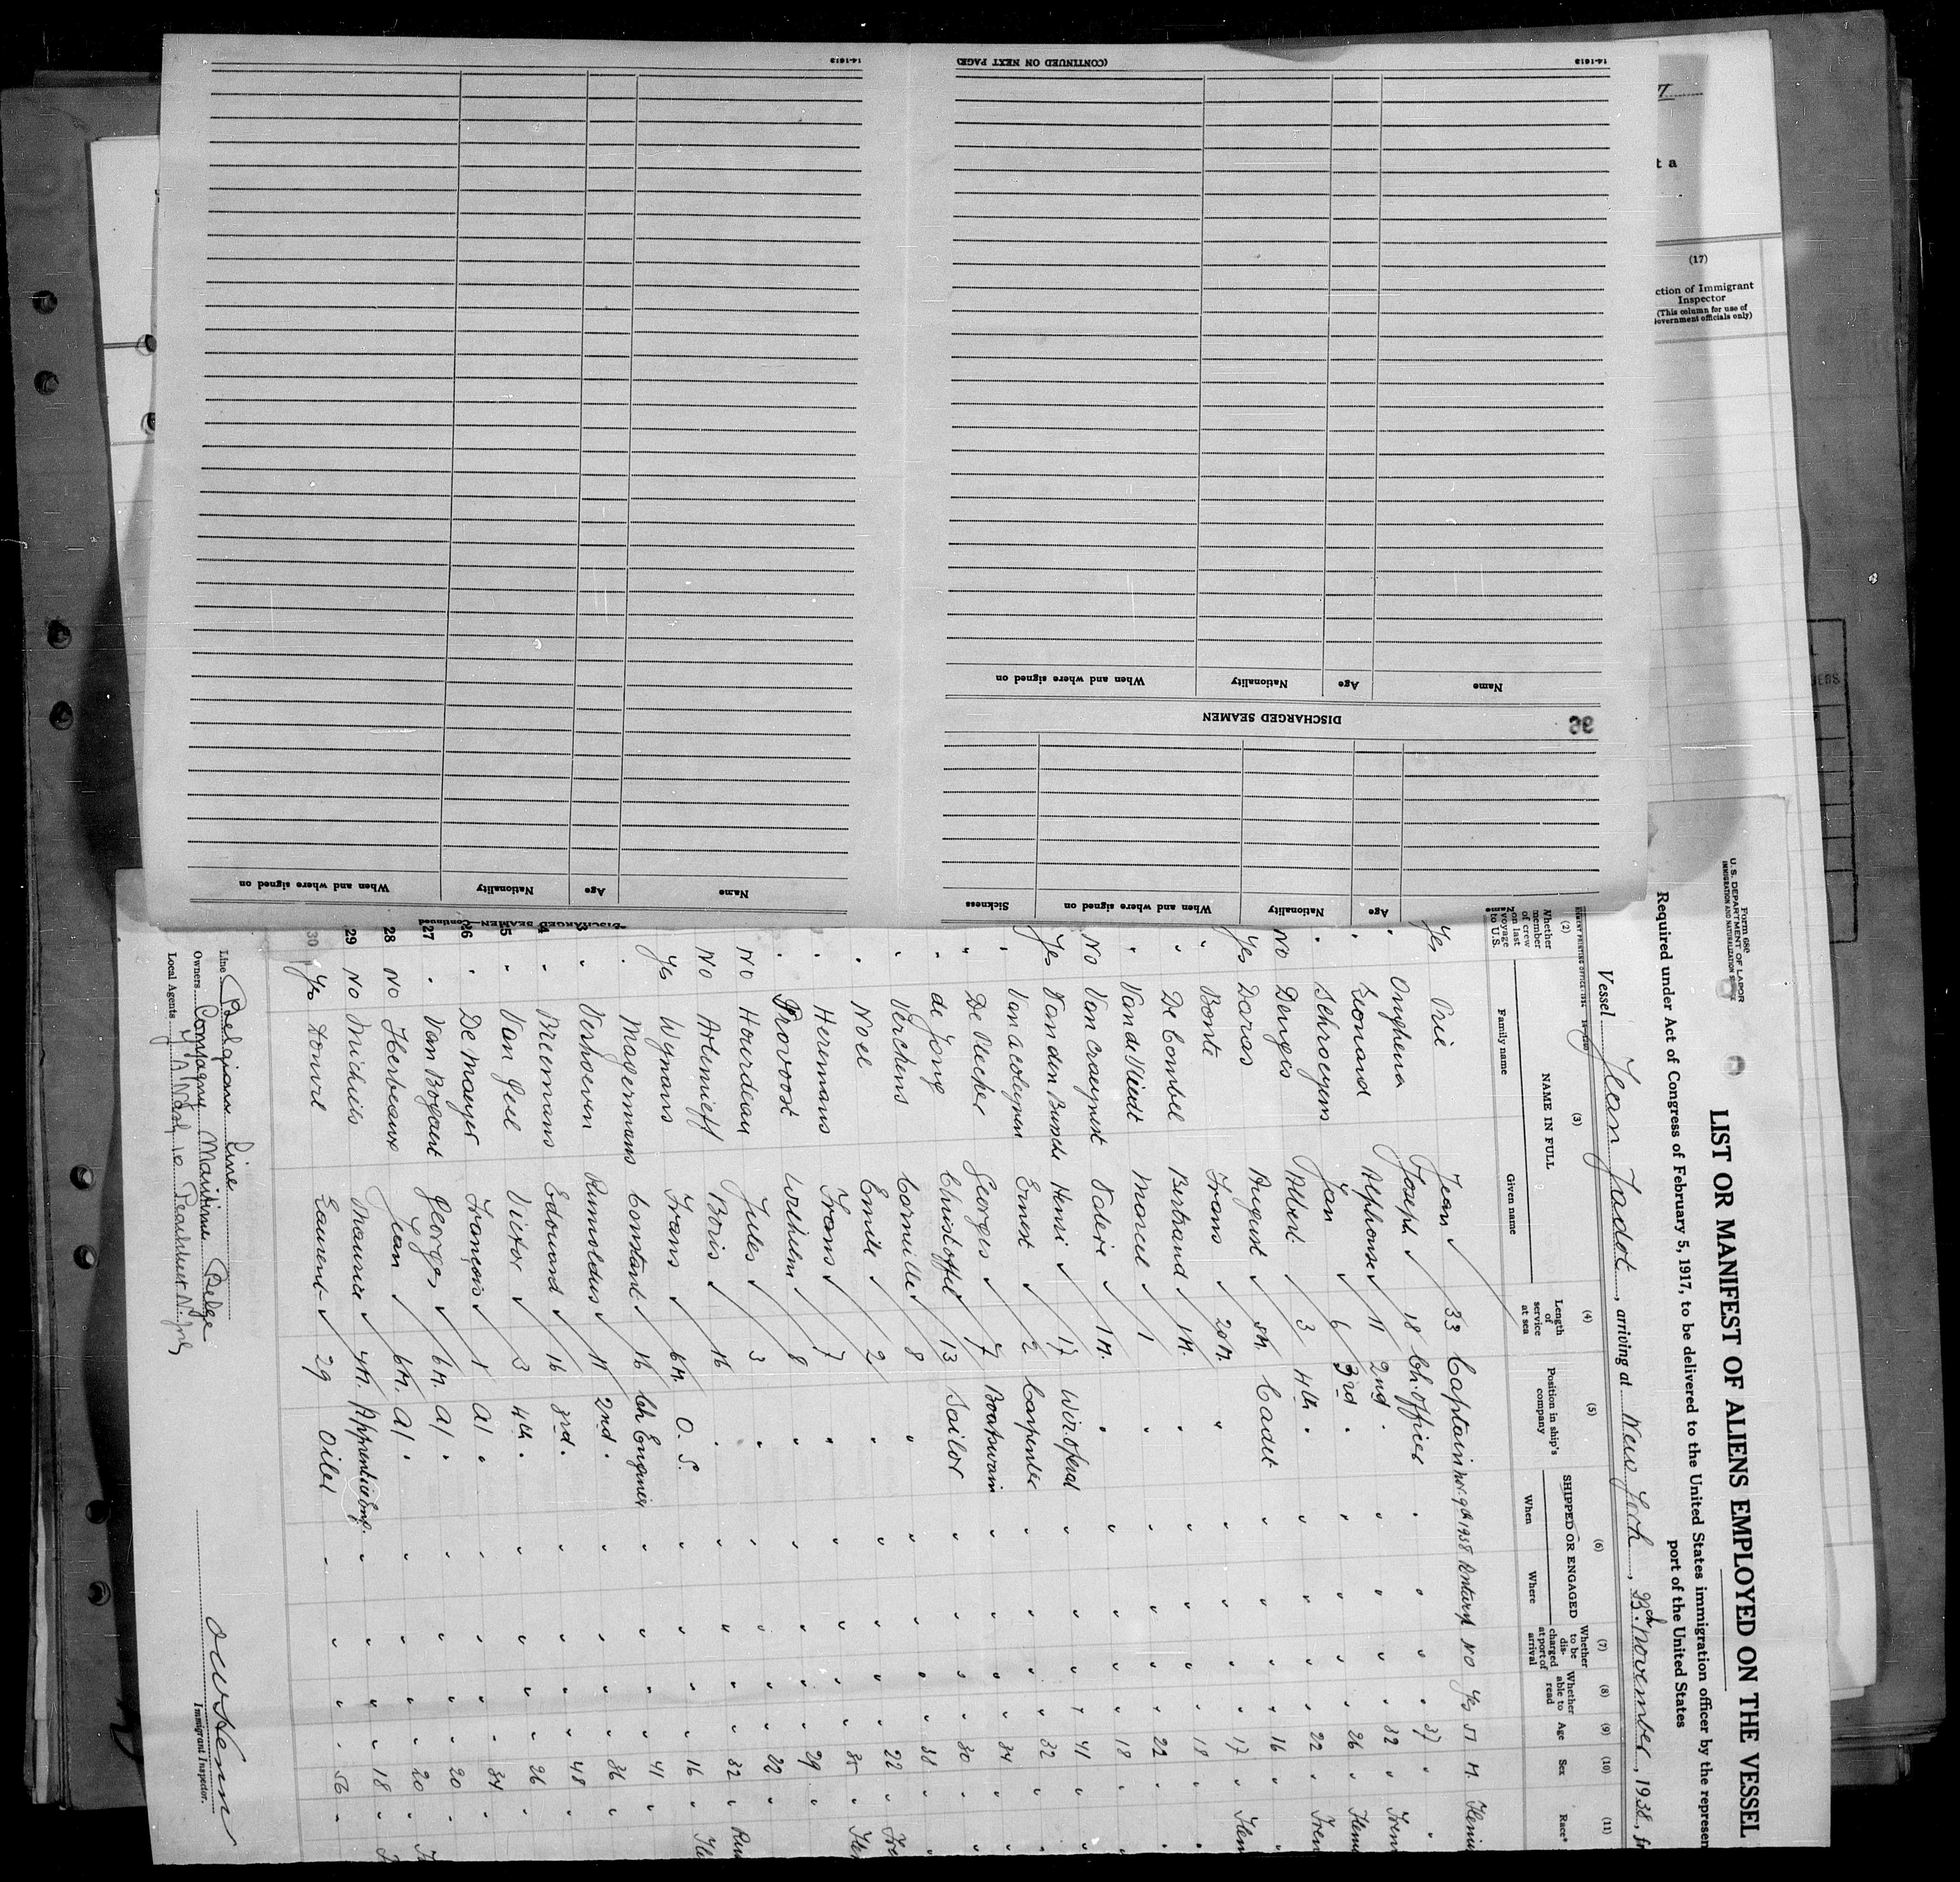 14-1613
(CONTINUED ON NEXT PAGE)
14-1613
Name
Age
Nationality
When and where signed on
DISCHARGED SEAMEN
36
Name
Age
Nationality
When and where signed on
Sickness
Name
Age
Nationality
When and where signed on
DISCHARGED SEAMEN—Continued
t a
(17)
ction of Immigrant
Inspector
(This column for use of
Government officials only)
Form 680
U. S. DEPARTMENT OF LABOR
IMMIGRATION AND NATURALIZATION SERVICE
LIST OR MANIFEST OF ALIENS EMPLOYED ON THE VESSEL
Required under Act of Congress of February 5, 1917, to be delivered to the United States immigration officer by the represen
port of the United States
Vessel Jean Jadot, arriving at New York, November, 1938, fr
(2) (3) (4) (5) (6) (7) (8) (9) (10) (11)
Whether member of crew on last voyage to U.S.
NAME IN FULL
Family name
Given name
Length of service at sea
Position in ship's company
SHIPPED OR ENGAGED
When
Where
Whether to be discharged at port of arrival
Whether able to read
Age
Sex
Race*
Yes Prie Jean 33 Captain Nov. 9th 1938 Antwerp No Yes 51 M. Flemi
" Onghena Joseph 18 Ch. officer " " " " 37 "
" Leonard Alphonse 11 2nd " " " " " 32 " Fren
" Schroeyens Jan 6 3rd " " " " " 26 " Flem
No Denges Albert 3 4th " " " " " 22 " Fren
Yes Daras August 8M. Cadet " " " " 16 "
" Bonte Frans 20M. " " " " " 17 " Flem
" De Combel Bertrand 1M. " " " " " 18 "
" Van de Vliedt Marcel 1 " " " " " 22 "
No Van Craeynest Valere 1M. " " " " " 18 "
Yes Van den Bussche Henri 17 Wir. Operat " " " " 41 "
" Van Acoleyen Ernest 2 Carpenter " " " " 32 "
" De Plecker Georges 7 Boatswain " " " " 34 "
" de Jong Christoffel 13 Sailor " " " " 30 "
" Verchens Camille 8 " " " " " 38 "
" Noel Emile 2 " " " " " 22 " Fre
" Heremans Frans 7 " " " " " 35 " Fle
" Provoost Wilhelm 8 " " " " " 29 "
No Hourdeau Jules 3 " " " " " 22 "
No Artemieff Boris 16 " " " " " 32 " Rus
Yes Wynans Frans 6M. O. S. " " " " 16 " Fle
" Magermans Constant 16 Ch Engineer " " " " 41 "
" Verhoeven Rumoldus 11 2nd " " " " " 36 "
" Breemans Edouard 16 3rd " " " " " 48 "
" Van Geel Victor 3 4th " " " " " 26 "
26 " De Mauyer François 1 A1 " " " " " 34 "
27 " Van Bogaert Georges 6M. A1 " " " " " 20 "
28 No Herbeaux Jean 6M. A1 " " " " " 20 "
29 No Michiels Maurice 4M. Apprentice Eng. " " " " 18 "
30 Yes Laurent 29 Oiler " " " " 56 "
Line Belgian Line
Owners Compagnie Maritime Belge
Local Agents
Immigrant Inspector.